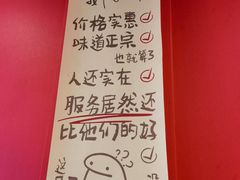 价格实惠
味道正宗
也就算了
人还实在
服务居然还
比他们的好
???